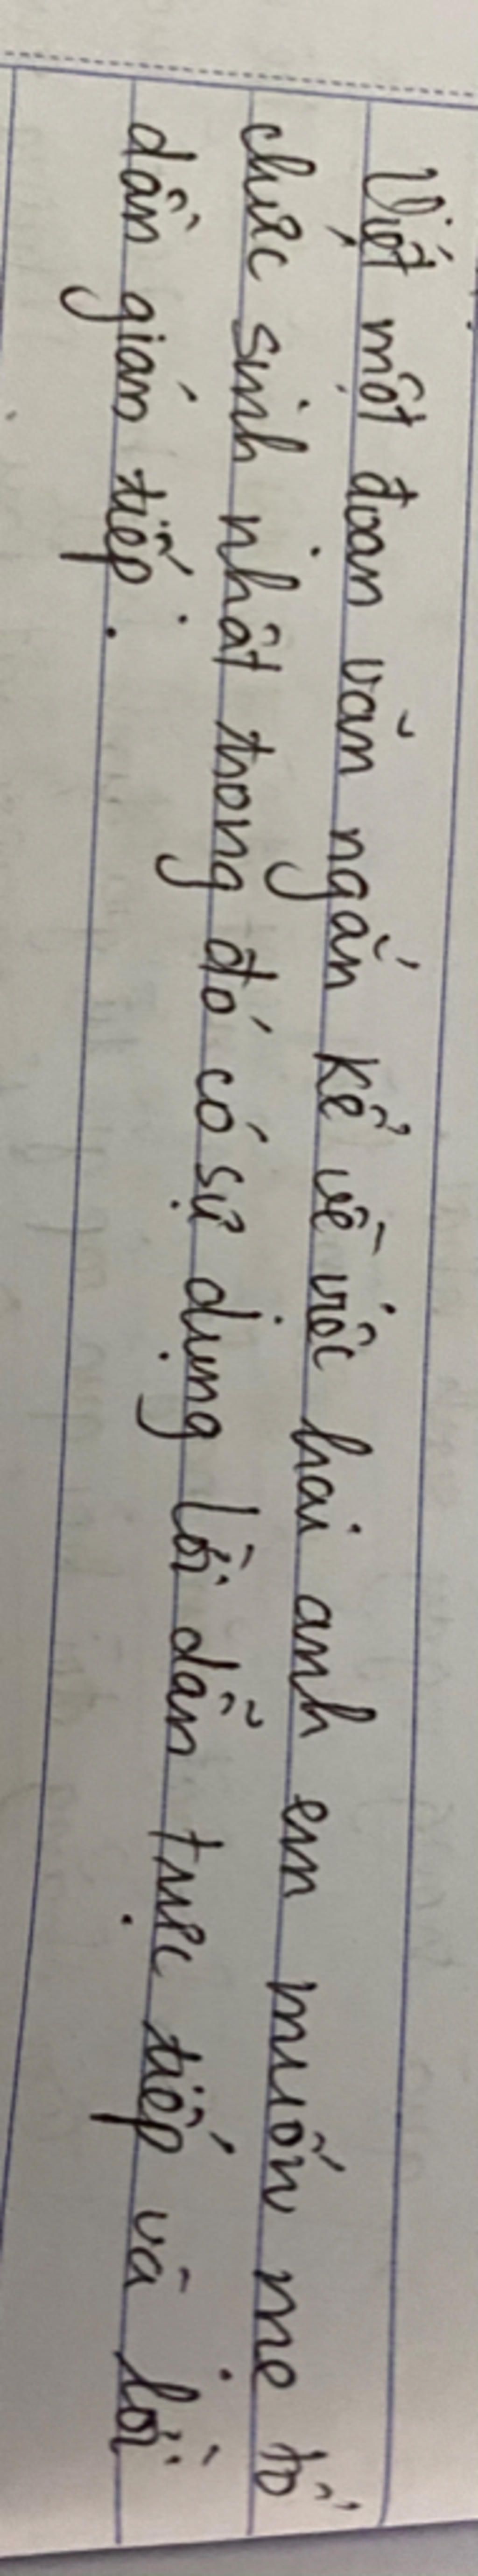 Viết một đoạn văn ngắn kể về việc hai anh em muốn mẹ tổ
chức sinh nhật trong đó có sự dụng lời dẫn trực tiếp và lời
dẫn gián tiếp.